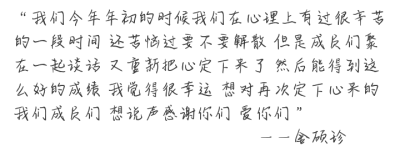 “我们今年年初的时候我们在心理上有过很辛苦
的一段时间 还苦恼过要不要解散 但是成员们聚
在一起谈话 又重新把心定下来了 然后能得到这
么好的成绩 我觉得很幸运 想对再次定下心来的
我们成员们 想说声感谢你们 爱你们”
——金硕珍